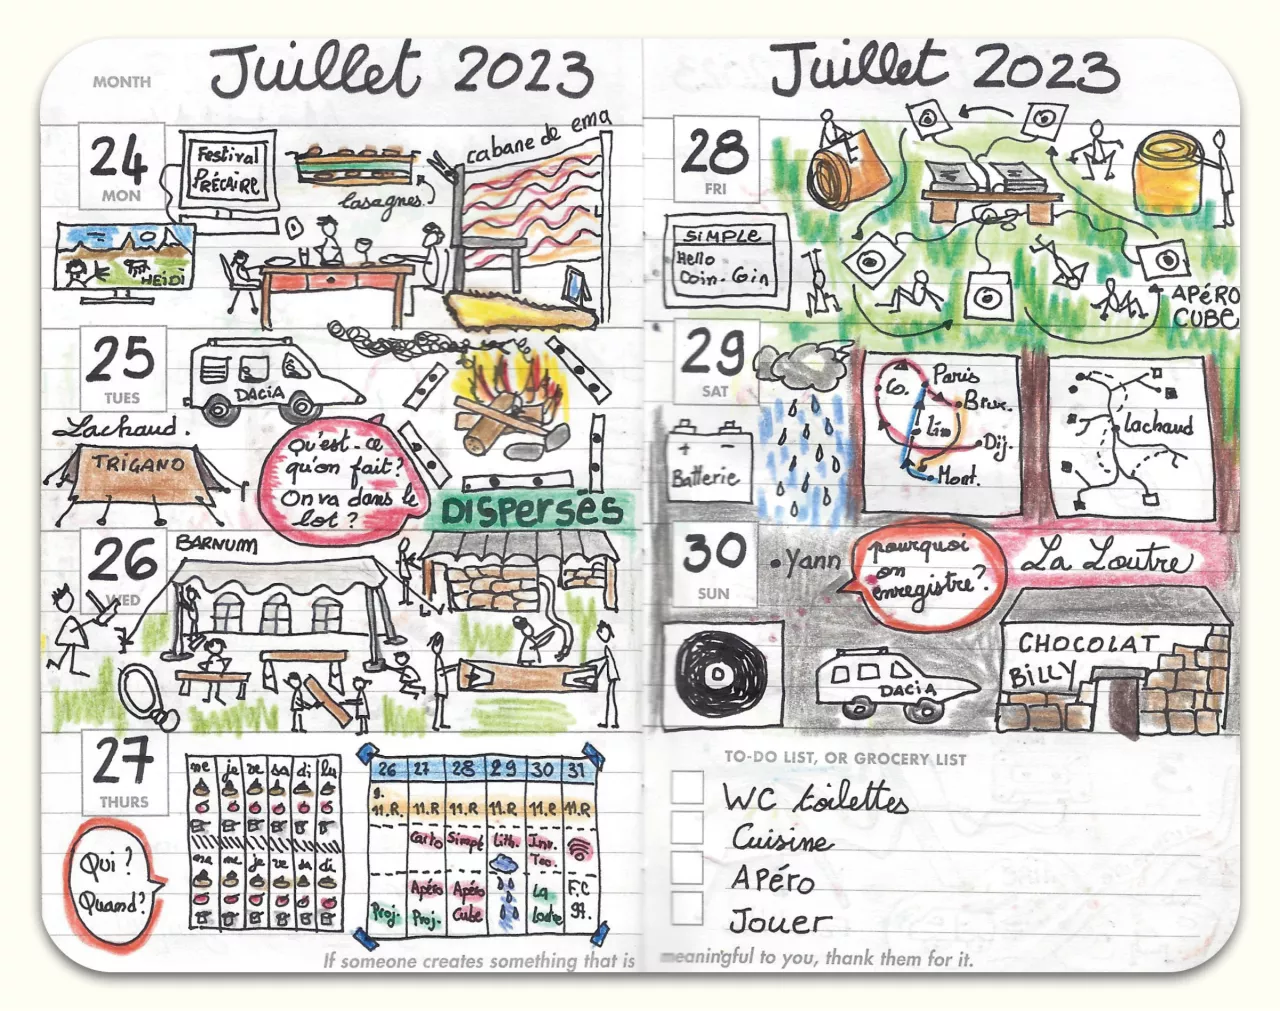 MONTH
Juillet 2023
24
MON
Festival
PRÉCAIRE
lasagnes
cabane de ema
HEIDI
25
TUES
DACIA
Lachaud.
TRIGANO
Qu'est-ce
qu'on fait?
On va dans le
lot ?
DISPERSÉS
26
WED
BARNUM
27
THURS
Qui ?
Quand?
me je ve sa di lu
ma me je ve sa di
26 27 28 29 30 31
11.R. 11.R 11.R 11.R 11.R 11.R
Carto Simple Lith. Inv.
Teo.
Apéro Apéro La F.C
Proj. Proj. Cube
If someone creates something that is
Juillet 2023
28
FRI
SIMPLE
Hello
Coin-Coin
APÉRO
CUBE
29
SAT
+ -
Batterie
Co. Paris
Brux.
Lim
Dij.
Mont.
Lachaud
30
SUN
Yann
pourquoi
on
enregistre?
La Loutre
DACIA
CHOCOLAT
BILLY
TO-DO LIST, OR GROCERY LIST
WC toilettes
Cuisine
APéro
Jouer
meaningful to you, thank them for it.